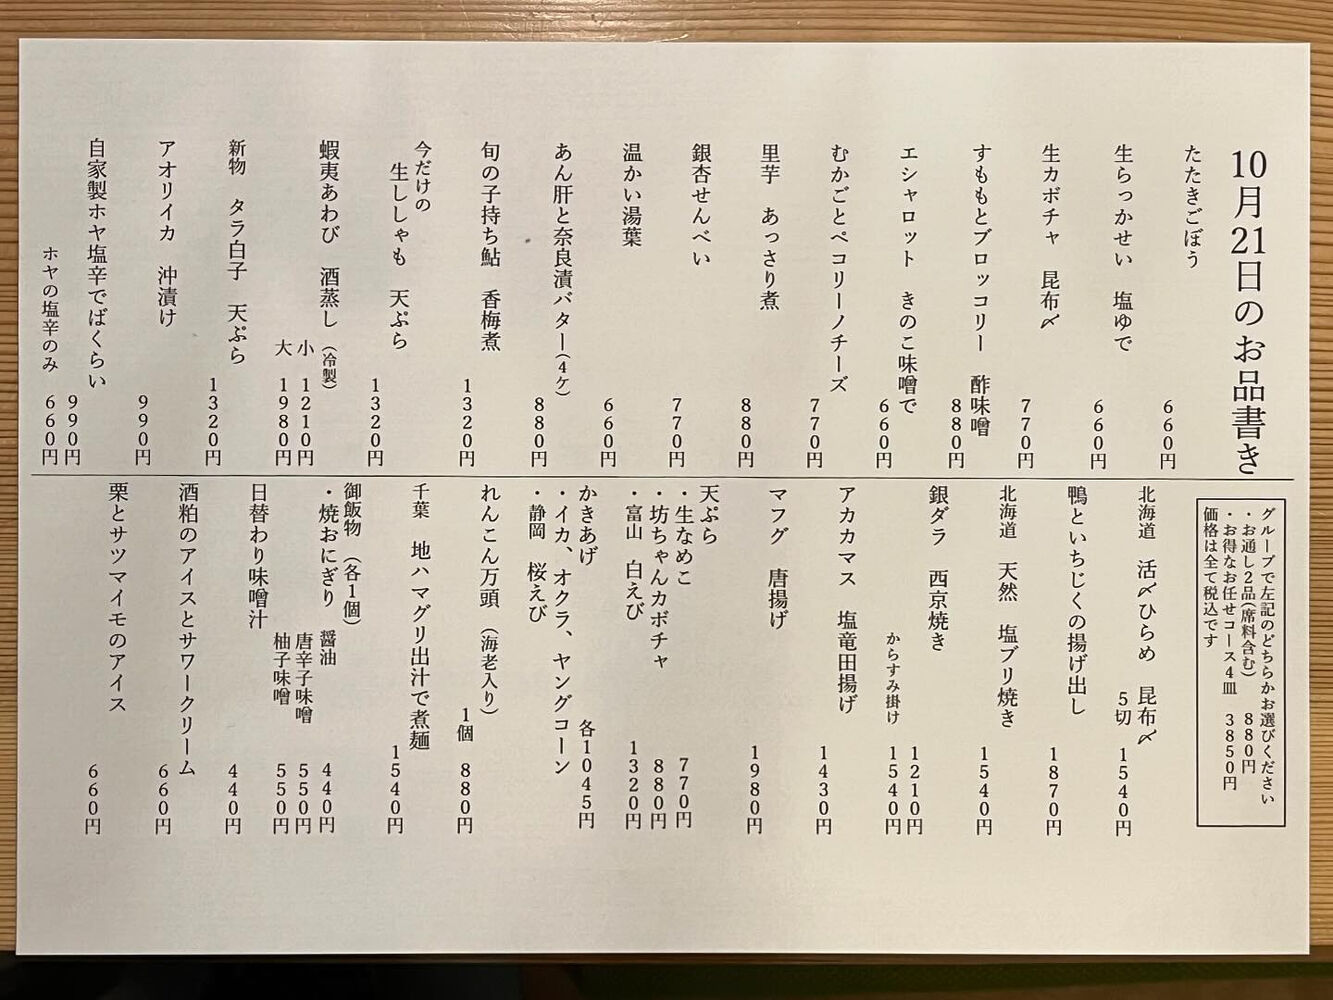 10月21日のお品書き
たたきごぼう
660円
生らっかせい 塩ゆで
660円
生カボチャ 昆布〆
770円
すももとブロッコリー 酢味噌
880円
エシャロット きのこ味噌で
660円
むかごとペコリーノチーズ
770円
里芋 あっさり煮
880円
銀杏せんべい
770円
温かい湯葉
660円
あん肝と奈良漬バター(4ケ)
880円
旬の子持ち鮎 香梅煮
1320円
今だけの
生ししゃも 天ぷら
1320円
蝦夷あわび 酒蒸し(冷製)
小 1210円
大 1980円
新物 タラ白子 天ぷら
1320円
アオリイカ 沖漬け
990円
自家製ホヤ塩辛でばくらい
990円
ホヤの塩辛のみ 660円
グループで左記のどちらかお選びください
・お通し2品(席料含む) 880円
・お得なお任せコース4皿 3850円
価格は全て税込です
北海道 活〆ひらめ 昆布〆
5切 1540円
鴨といちじくの揚げ出し
1870円
北海道 天然 塩ブリ焼き
1540円
銀ダラ 西京焼き
1210円
からすみ掛け 1540円
アカカマス 塩竜田揚げ
1430円
マフグ 唐揚げ
1980円
天ぷら
・生なめこ 770円
・坊ちゃんカボチャ 880円
・富山 白えび 1320円
かきあげ 各1045円
・イカ、オクラ、ヤングコーン
・静岡 桜えび
れんこん万頭(海老入り)
1個 880円
千葉 地ハマグリ出汁で煮麺
1540円
御飯物(各1個)
・焼おにぎり 醤油 440円
唐辛子味噌 550円
柚子味噌 550円
日替わり味噌汁
440円
酒粕のアイスとサワークリーム
660円
栗とサツマイモのアイス
660円